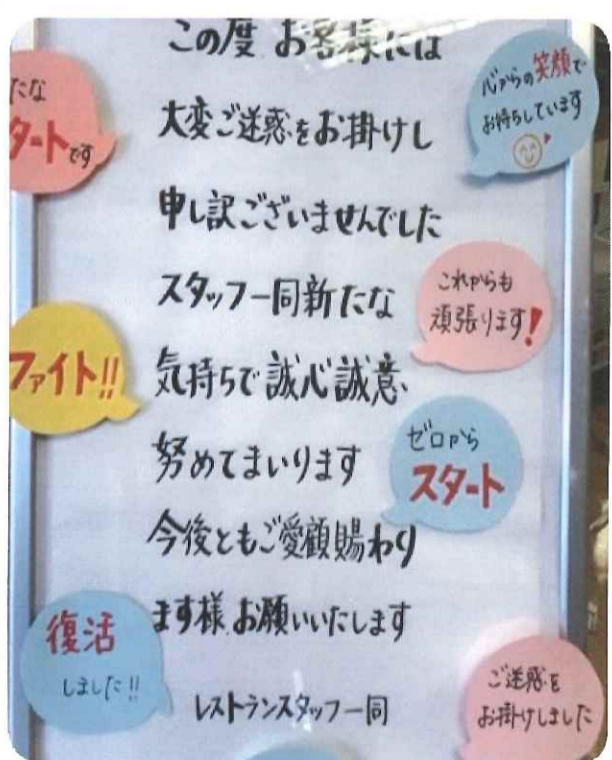 この度 お客様には
大変ご迷惑をお掛けし
申し訳ございませんでした
スタッフ一同新たな
気持ちで誠心誠意、
努めてまいります
今後ともご愛顧賜わり
ます様、お願いいたします
レストランスタッフ一同
たな
タートです
ファイト!!
復活
しました!!
心からの笑顔で
お待ちしています
これからも
頑張ります!
ゼロから
スタート
ご迷惑を
お掛けしました